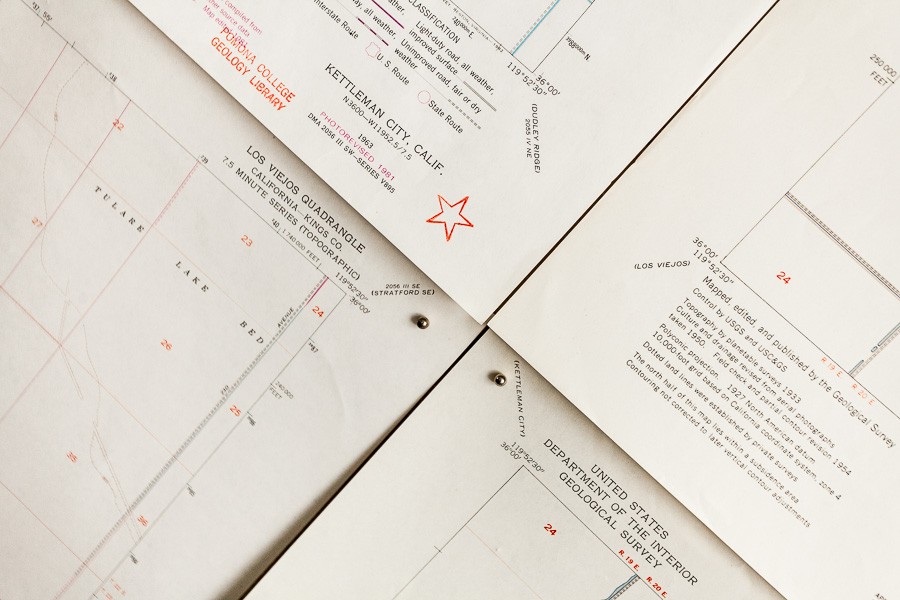 compiled from
other source data
Map edited
POMONA COLLEGE
GEOLOGY LIBRARY
CLASSIFICATION
Light-duty road, all weather,
improved surface
Unimproved road, fair or dry
weather
Interstate Route
U. S. Route
State Route
KETTLEMAN CITY, CALIF.
N3600—W11952.5/7.5
1963
PHOTOREVISED 1981
DMA 2056 III SW—SERIES V895
36°00'
119°52'30"
(DUDLEY RIDGE)
2055 IV NE
LOS VIEJOS QUADRANGLE
CALIFORNIA—KINGS CO.
7.5 MINUTE SERIES (TOPOGRAPHIC)
1 740 000 FEET
119°52'30"
36°00'
2056 III SE
(STRATFORD SE)
TULARE
LAKE
BED
AVENUE
22
23
24
25
26
27
35
36
250 000
FEET
36°00'
119°52'30"
(LOS VIEJOS)
24
R. 19 E. R. 20 E.
Mapped, edited, and published by the Geological Survey
Control by USGS and USC&GS
Topography by planetable surveys 1933
Culture and drainage revised from aerial photographs
taken 1950. Field check and partial contour revision 1954
Polyconic projection. 1927 North American datum
10,000-foot grid based on California coordinate system, zone 4
Dotted land lines were established by private surveys
The north half of this map lies within a subsidence area
Contouring not corrected to later vertical contour adjustments
(KETTLEMAN CITY)
119°52'30"
36°00'
UNITED STATES
DEPARTMENT OF THE INTERIOR
GEOLOGICAL SURVEY
24
R. 19 E. R. 20 E.